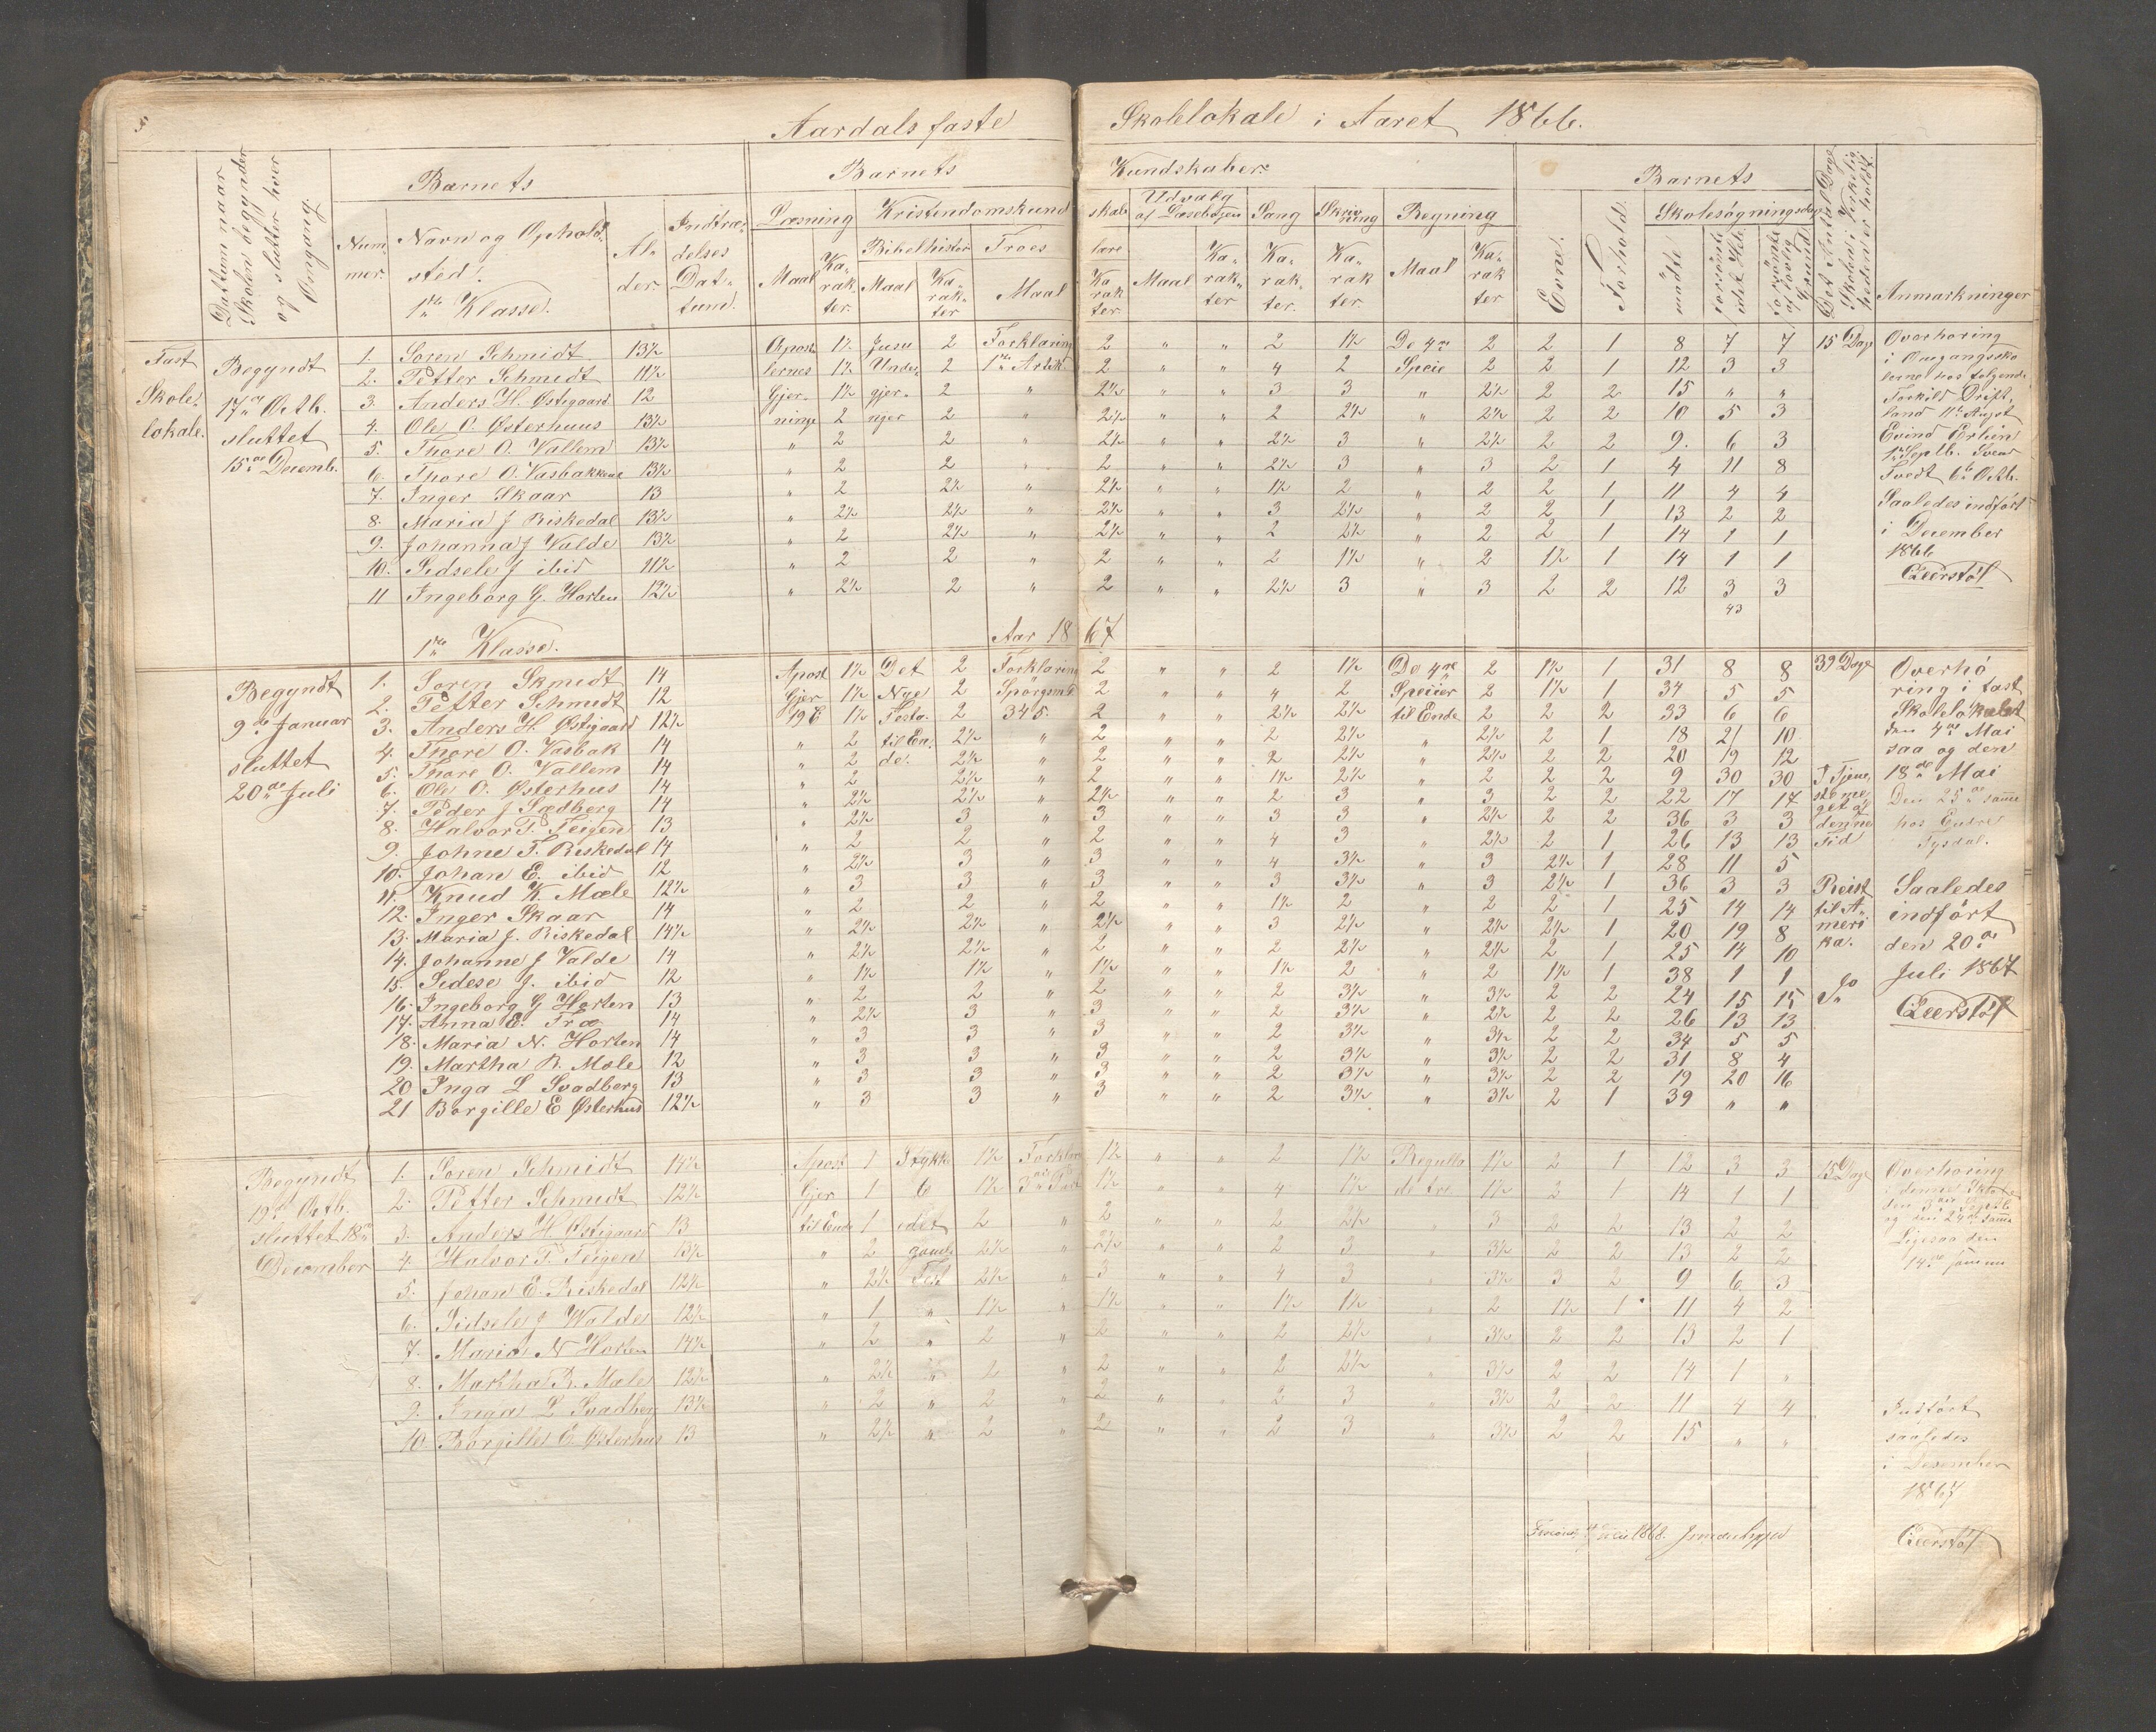 5
Aardals faste Skolelokale i Aaret 1866.
Datum naar Skolen begynder og slutter hver Omgang.
Barnets
Barnets Kundskaber
Barnets
Nummer.
Navn og Opholdssted.
1ste Klasse.
Alder
Indtrædelses Datum.
Læsning
Maal
Karakter.
Kristendomskundskab
Bibelhistor
Maal
Karakter
Troeslære
Maal
Karakter.
Udvalg af Læsebogen
Maal
Karakter
Sang
Karakter.
Skrivning
Karakter.
Regning
Maal
Karakter
Evne.
Forhold.
Skolesøgningsdage
mødte
forsømte i det Hele
forsømte af lovlig Grund
Det Antal Dage Skolen i Virkeligheden er holdt.
Anmærkninger
Fast Skolelokale.
Begyndt 17de Octb. sluttet 15de Decemb.
1. Soren Schmidt 13½ Apost 1½ Jesu 2 Forklaring 2 " " 2 1½ De 4re 2 2 1 8 7 7 15 Dage
2. Petter Schmidt 11½ lernes 1½ Under 2 1ste Artik. 2 " " 4 2 Speie 2 2 1 12 3 3
3. Anders H. Østigaard 12 Gjer 1½ gjer 2 " 2½ " " 3 3 " 2½ 2 2 15 " "
4. Ole O. Østerhuus 13½ ninge 2 nger 2 " 2½ " " 2 2½ " 2½ 2 2 10 5 3
5. Thore O. Vallem 13½ " 2 2 " 2½ " " 2½ 3 " 2½ 2 2 9. 6 3
6. Thore O. Vasbakken 13½ " 2 2 " 2 " " 2½ 3 " 3 2 1 4 11 8
7. Inger Skaar 13 " 2 2½ " 2½ " " 1½ 2 " 2 2 1 11 4 4
8. Maria J Riskedal 13½ " 2½ 2½ " 2½ " " 3 2½ " 2 2 1 13 2 2
9. Johanna J Valde 13½ " 2 2½ " 2½ " " 2 2½ " 2 2 1 14 1 1
10. Sidsele J ibid 11½ " 2 2 " 2 " " 2 1½ " 2 1½ 1 14 1 1
11 Ingeborg G. Horten 12½ " 2½ 2 " 2 " " 2½ 3 " 3 2 2 12 3 3
43
Overhøring
i Omgangssko
lerne hos følgende
Torkild Drift
land 11te Augst
Eivind Erlien
1ste Septb. Svend
Tvedt 6te Octb.
Saaledes indført
i December
1866
1ste Klasse. Aar 1867
Begyndt 9de Januar sluttet 20de Juli
1. Soren Skmidt 14 Apost 1½ Det 2 Forklaring 2 " " 2 1½ De 4re 2 1½ 1 31 8 8 39 Dage
2. Petter Schmidt 12 Gjer 1½ Nye 2 Spørgsmål 2 " " 4 2 Speiier 2 1½ 1 34 5 5
3. Anders H. Østigaard 12½ 19 C 1½ Testa. 2 345. 2 " " 2½ 2½ til Ende 2 2 2 33 6 6
4. Thore O. Vasbak 14 " 2 til En 2½ " 2 " " 2 2½ " 2½ 2 1 18 21 10
5. Thore O. Vallem 14 " 2 de. 2½ " 2 " " 2 2½ " 2½ 2 2 20 19 12
6. Ole O. Østerhus 14 " 2 2½ " 2 " " 1½ 2½ " 2 2 2 9 30 30
7. Peder J Sædberg 14 " 2½ 2½ " 2½ " " 2 3 " 3 2 2 22 17 17
8. Halvor T. Teigen 13 " 2½ 3 " 3 " " 3 3 " 2½ 2 2 36 3 3
9. Johne T. Riskedal 14 " 2 2 " 2 " " 4 3 " 2½ 2 1 26 13 13
10. Johan E. ibid 12 " 2½ 3 " 3 " " 4 3½ " 3 2½ 1 28 11 5
11. Knud K. Mæle 12½ " 3 3 " 3 " " 3 3½ " 3 2½ 1 36 3 3
12. Inger Skaar 14 " 2 2 " 2 " " 1½ 2 " 2 2 1 25 14 14
13. Maria J. Riskedal 14½ " 2½ 2½ " 2½ " " 3 2½ " 2½ 2½ 1 20 19 8
14. Johanne J Valde 14 " 2½ 2½ " 2 " " 2 2½ " 2½ 2 1 25 14 10
15. Sidese J. ibid 12 " 1½ 1½ " 1½ " " 1½ 2 " 2 1½ 1 38 1 1
16. Ingeborg G Horten 13 " 2 2 " 2 " " 2 3½ " 3½ 2 2 24 15 15
17. Anna E. Træ 14 " 2½ 3 " 3 " " 2 3½ " 2½ 2 2 26 13 13
18. Maria N. Horten 14 " 3 3 " 3 " " 2 3½ " 3½ 2 2 34 5 5
19. Martha R. Mæle 12 " 3 3 " 3 " " 2 3½ " 3½ 2 2 31 8 4
20 Inga L Svadberg 13 " 3 3 " 3 " " 2 3½ " 3½ 2 2 19 20 16
21 Borgille E Østerhus 12½ " 3 3 " 3 " " 2 3½ " 3½ 2 1 39 " "
I Tjene
ste me
get af
denne
Tid
Reist
til A
meri
ka.
Overhø
ring i fast
Skolelokalet
den 4de Mai
saa og den
18de Mai
Den 25de samme
hos Endre
Tysdal.
Saaledes
indført
den 20de
Juli 1867
Begyndt 19de Octb. sluttet 18de December
1. Soren Schmidt 14½ Apost 1 Stykke 1½ Forklar 1½ " " 2 1½ Regulla 1½ 2 1 12 3 3 15 Dage
2. Petter Schmidt 12½ Gjer 1 6 1½ 1½ " " 4 1½ de tre 1½ 2 1 14 1 1
3. Anders H. Østigaard 13 til Ende 1 2 " 2 " " 2 2½ " 3 2 2 13 2 2
4. Halvor T. Teigen 13½ " 2 2½ " 2½ " " 2 3 " 3½ 2 2 13 2 2
5. Johan E. Riskedal 12½ " 2½ Test 2½ " 3 " " 4 3 " 3½ 3 2 9 6 3
6. Sidsele J Walde 12½ " 1 " 1½ " 1½ " " 1½ 1½ " 2 1½ 1 11 4 2
7. Maria N Horten 14½ " 2 " 2 " 2 " " 2 2½ " 3½ 2 2 13 2 1
8. Martha R. Mæle 12½ " 2½ " 2 " 2 " " 2 2½ " 3½ 2 2 14 1 "
9. Inga L Svadberg 13½ " 2 " 2 " 2 " " 2 3 " 3½ 2 2 11 4 4
10 Borgille E Østerhus 13 " 2½ " 2 " 2 " " 2 3 " 3½ 2 2 15 " "
Overhøring
Ligesaa den
Indført
saaledes
i Desember
1867
1868.